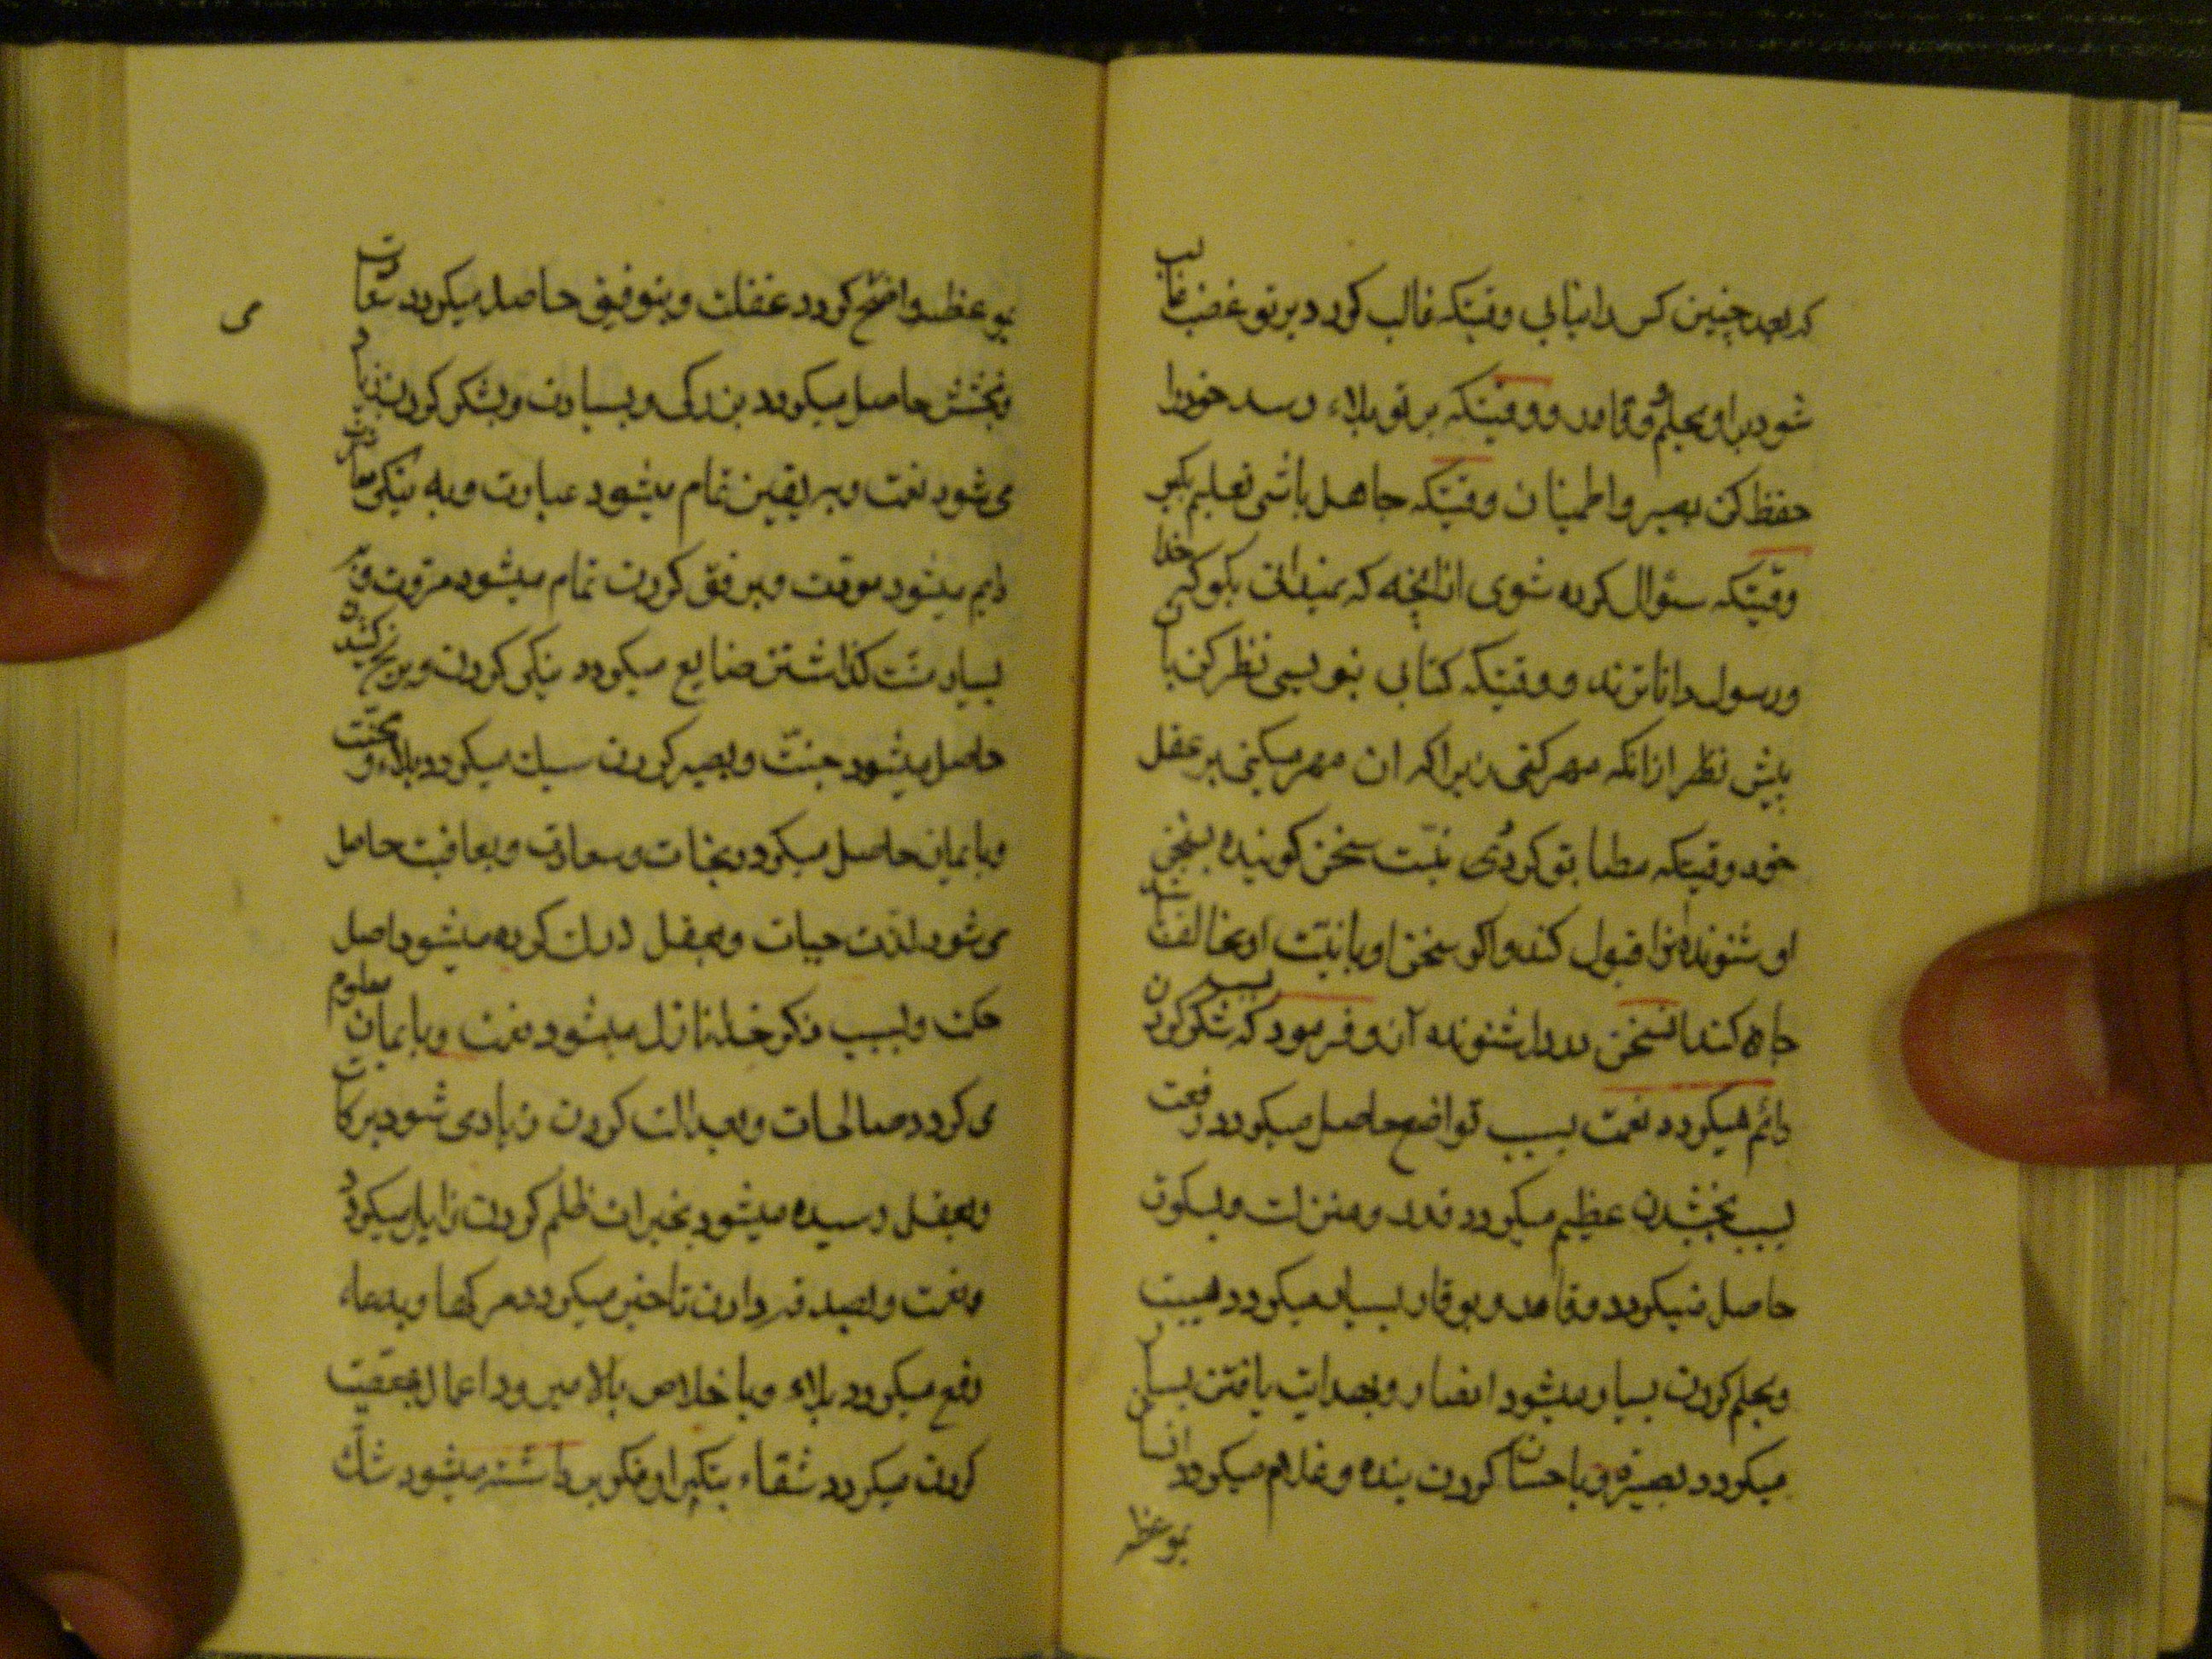 که بعد چنین کس را نیابی وقتیکه غالب کردد بر تو غضب غالب
شود بر او بحلم و وقار و وقتیکه بر تو بلاء رسد خود را
حفظ کن بصبر و اطمینان وقتیکه جاهل باشی تعلیم بکیر
وقتیکه سئوال کرده شوی از انچه که نمیدانی بکو که خدا
و رسول داناترند و وقتیکه کتابی بنویسی نظر کن بان
پیش نظر از انکه مهر کنی زیراکه ان مهر میکنی بر عقل
خود وقتیکه مطابق کردی نیّت سخن کوینده بسخن
او شنونده انرا قبول کند و اکر سخن او با نیّت او مخالف باشد
جاه کند ان سخن در دل شنونده آن و فرمود که بسبب شکر کردن
دائم میکردد نعمت بسبب تواضع حاصل میکردد رفعت
بسبب بخشیدن عظیم میکردد قدر و منزلت و بسکوت
حاصل میکردد وقار و بوقار بسیار میکردد هیبت
و بحلم کردن بسیار میشود انصار و بهدایت یافتن بسیار
میکردد بصیرة و باحسان کردن بنده و غلام میکردد انسان
بموعظه
بموعظه واضح کردد غفلت و بتوفیق حاصل میکردد سعادت
و بخشش حاصل میکردد بزرکی و بسیادت و بشکر کردن زیاد
می شود نعمت و به یقین تمام میشود عبادت و به نیکی معاشرت
دایم میشود مودت و برفق کردن تمام میشود مروت و به
بسیار منّت کذاشتن ضایع میکردد نیکی کردن و برنج کشیدن
حاصل میشود جنّت و بصبر کردن سبک میکردد بلاء و محنت
و بایمان حاصل میکردد نجات و سعادت و بعافیت حاصل
می شود لذّت حیات و بعقل درک کرده میشود اصل
حکمت و بسبب ذکر خدا نازل میشود نعمت و بایمان معلوم
می کردد صالحات و بعدالت کردن زیادی شود برکات
و بعقل رسیده میشود بخیرات ظلم کردن زایل میکردد
نعمت و بصدقه دادن تاخیر میکردد مرکها و بدعاء
دفع میکردد بلاء و باخلاص بالا میرود اعمال بمعصیت
کردن میکردد شقاء بتکرار فکر برداشته میشود شک